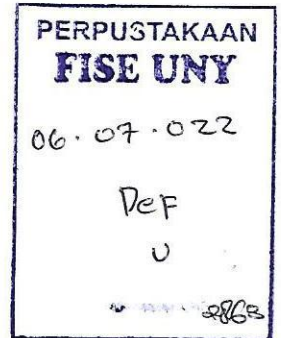 PERPUSTAKAAN
FISE UNY
06.07.022
Def
U